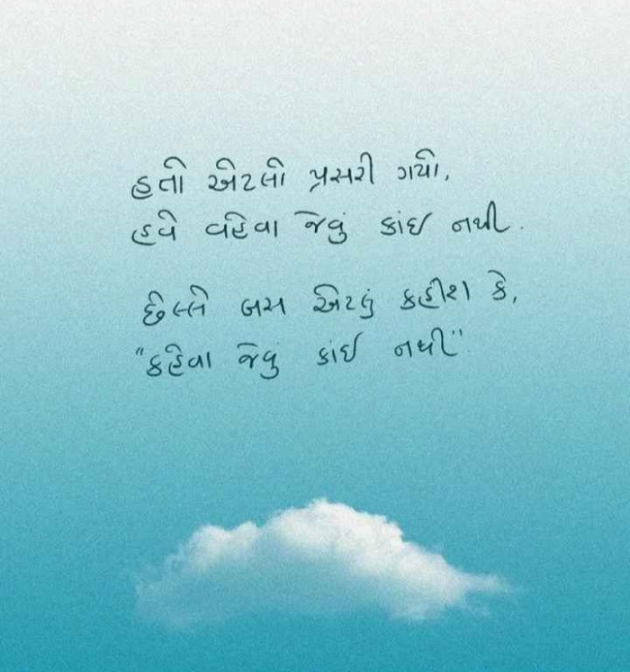 હતો એટલો પ્રસરી ગયો,
હવે વહેવા જેવું કાંઈ નથી.
છેલ્લે બસ એટલું કહીશ કે,
"કહેવા જેવું કાંઈ નથી".